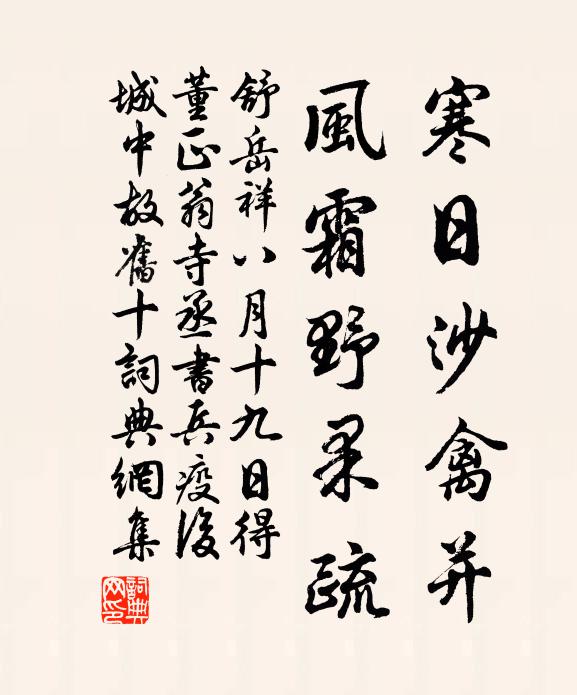 寒日沙禽并
風霜野果疏
舒岳祥八月十九日得
董正翁寺丞書兵疫後
城中故舊十詞典網集
詞典網印